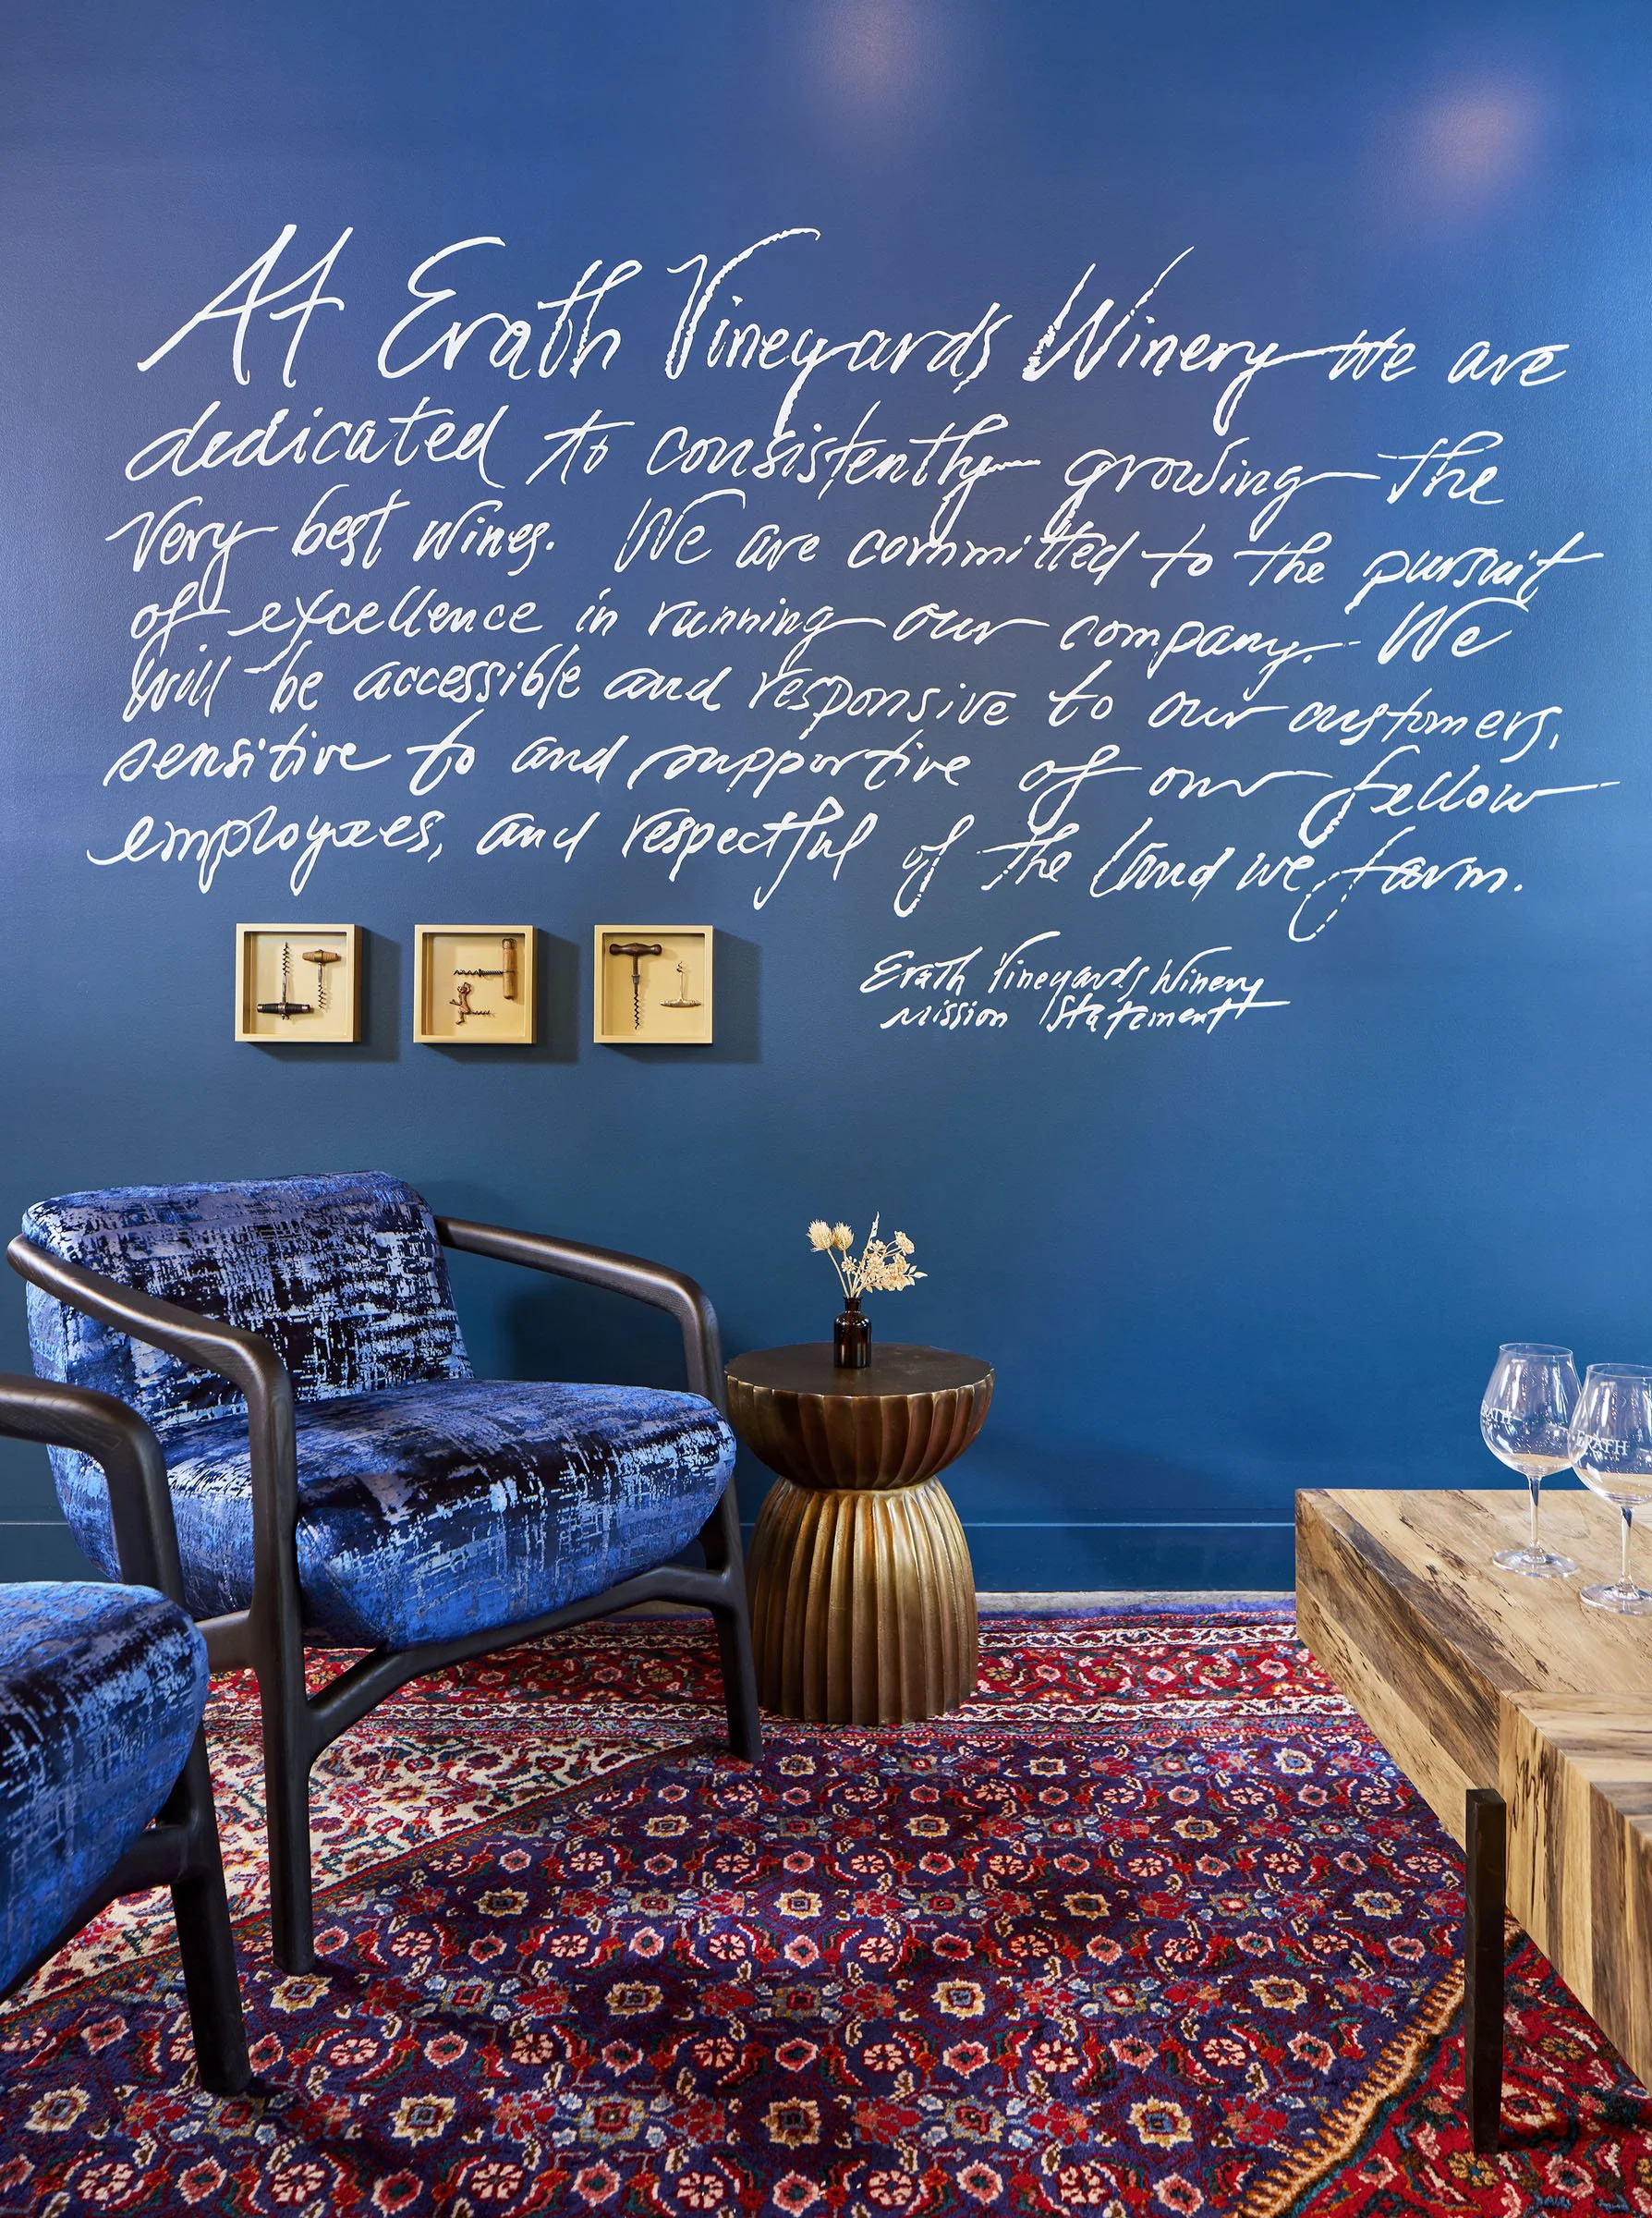 At Erath Vineyards Winery we are
dedicated to consistently growing the
very best wines. We are committed to the pursuit
of excellence in running our company. We
will be accessible and responsive to our customers,
sensitive to and supportive of our fellow
employees, and respectful of the land we farm.
Erath Vineyards Winery
Mission Statement
ERATH
ERATH